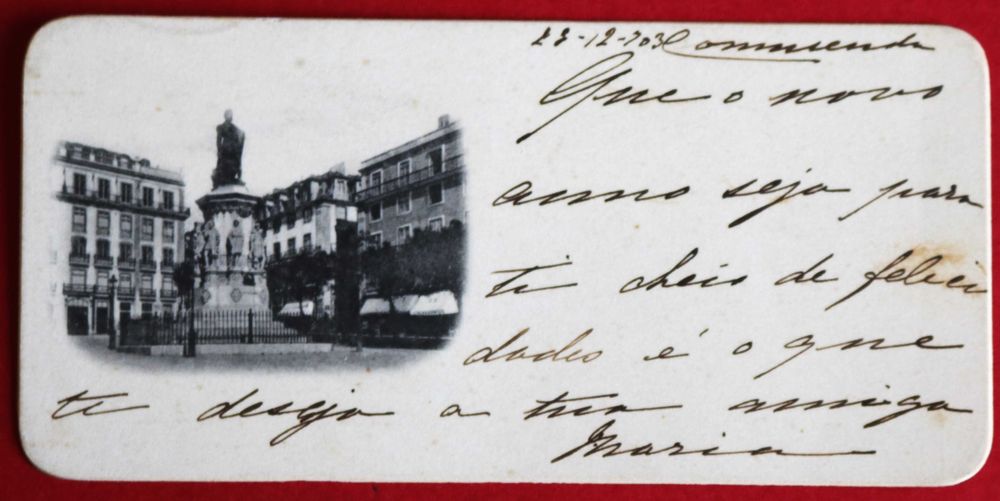 23-12-903 Commusenda
Que o novo
anno seja para
ti cheio de felici
dades é o que
te desejo a tua amiga
Maria